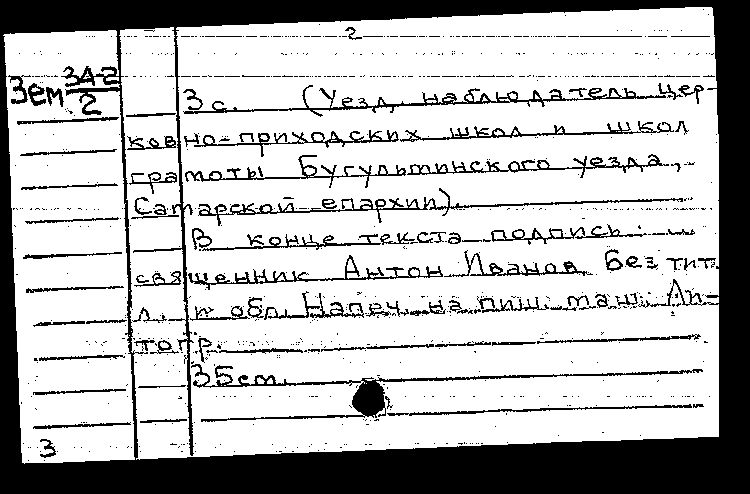 2
Зем 34-2/2
3 с. (Уезд. наблюдатель цер-
ковно-приходских школ и школ
грамоты Бугульминского уезда,
Самарской епархии).
В конце текста подпись:
священник Антон Иванов. Без тит.
л. и обл. Напеч. на пиш. маш. Ли-
тогр.
35см.
3